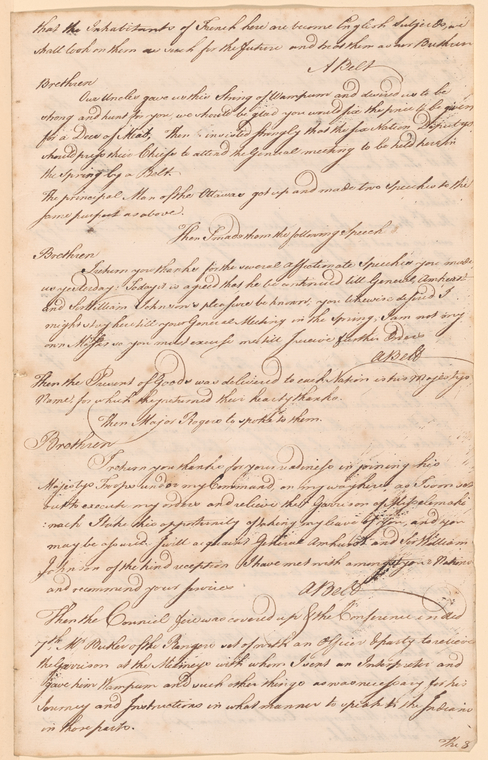 that the Inhabitants of French here are become English Subjects, we
shall look on them as such for the future and treat them as our Brethren
A Belt
Brethren
Our Uncles gave us this String of Wampum and desired us to be
strong and hunt for you, we should be glad you would fix the price to be given
for a Deer of Meat, then insisted strongly that the six Nation Deputys
should press their Chiefs to attend the General meeting to be held here in
the Spring by a Belt.
The principal Man of the Ottawas got up and made two Speeches to the
same purport as above.
Then I made them the following Speech
Brethren
I return you thanks for the several Affectionate Speeches you made
us yesterday; To day it is agreed that he be continued till General Amherst
and Sir William Johnson's pleasure be known, you likewise desired I
might stay here till your General Meeting in the Spring. I am not my
own Master so you must excuse me till I receive further Orders
A Belt
Then the Present of Goods was delivered to each Nation in his Majestys
Name, for which they returned their hearty thanks.
Then Major Rogers to spoke to them.
Brethren
I return you thanks for your readiness in joining his
Majestys Troops under my Command, on my way here, as I am
out to execute my orders and relieve the Garrison of Missilimaki
:nack I take this opportunity of taking my leave of you, and you
may be assured I will acquaint General Amherst and Sir William
Johnson of the kind reception I have met with amongst your Nations
and recommend your Service.
A Belt
Then the Council fire was covered up & the Conference ended
7th. Mr. Butler of the Rangers set of with an Officer & party to relieve
the Garrison at the Milineys with whom I sent an Interpreter and
I gave him Wampum and such other things as was necessary for his
Journey and Instructions in what manner to speak to the Indians
in those parts.
The 8